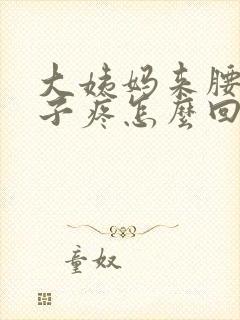 大姨妈来腰
子疼怎麼回
童奴